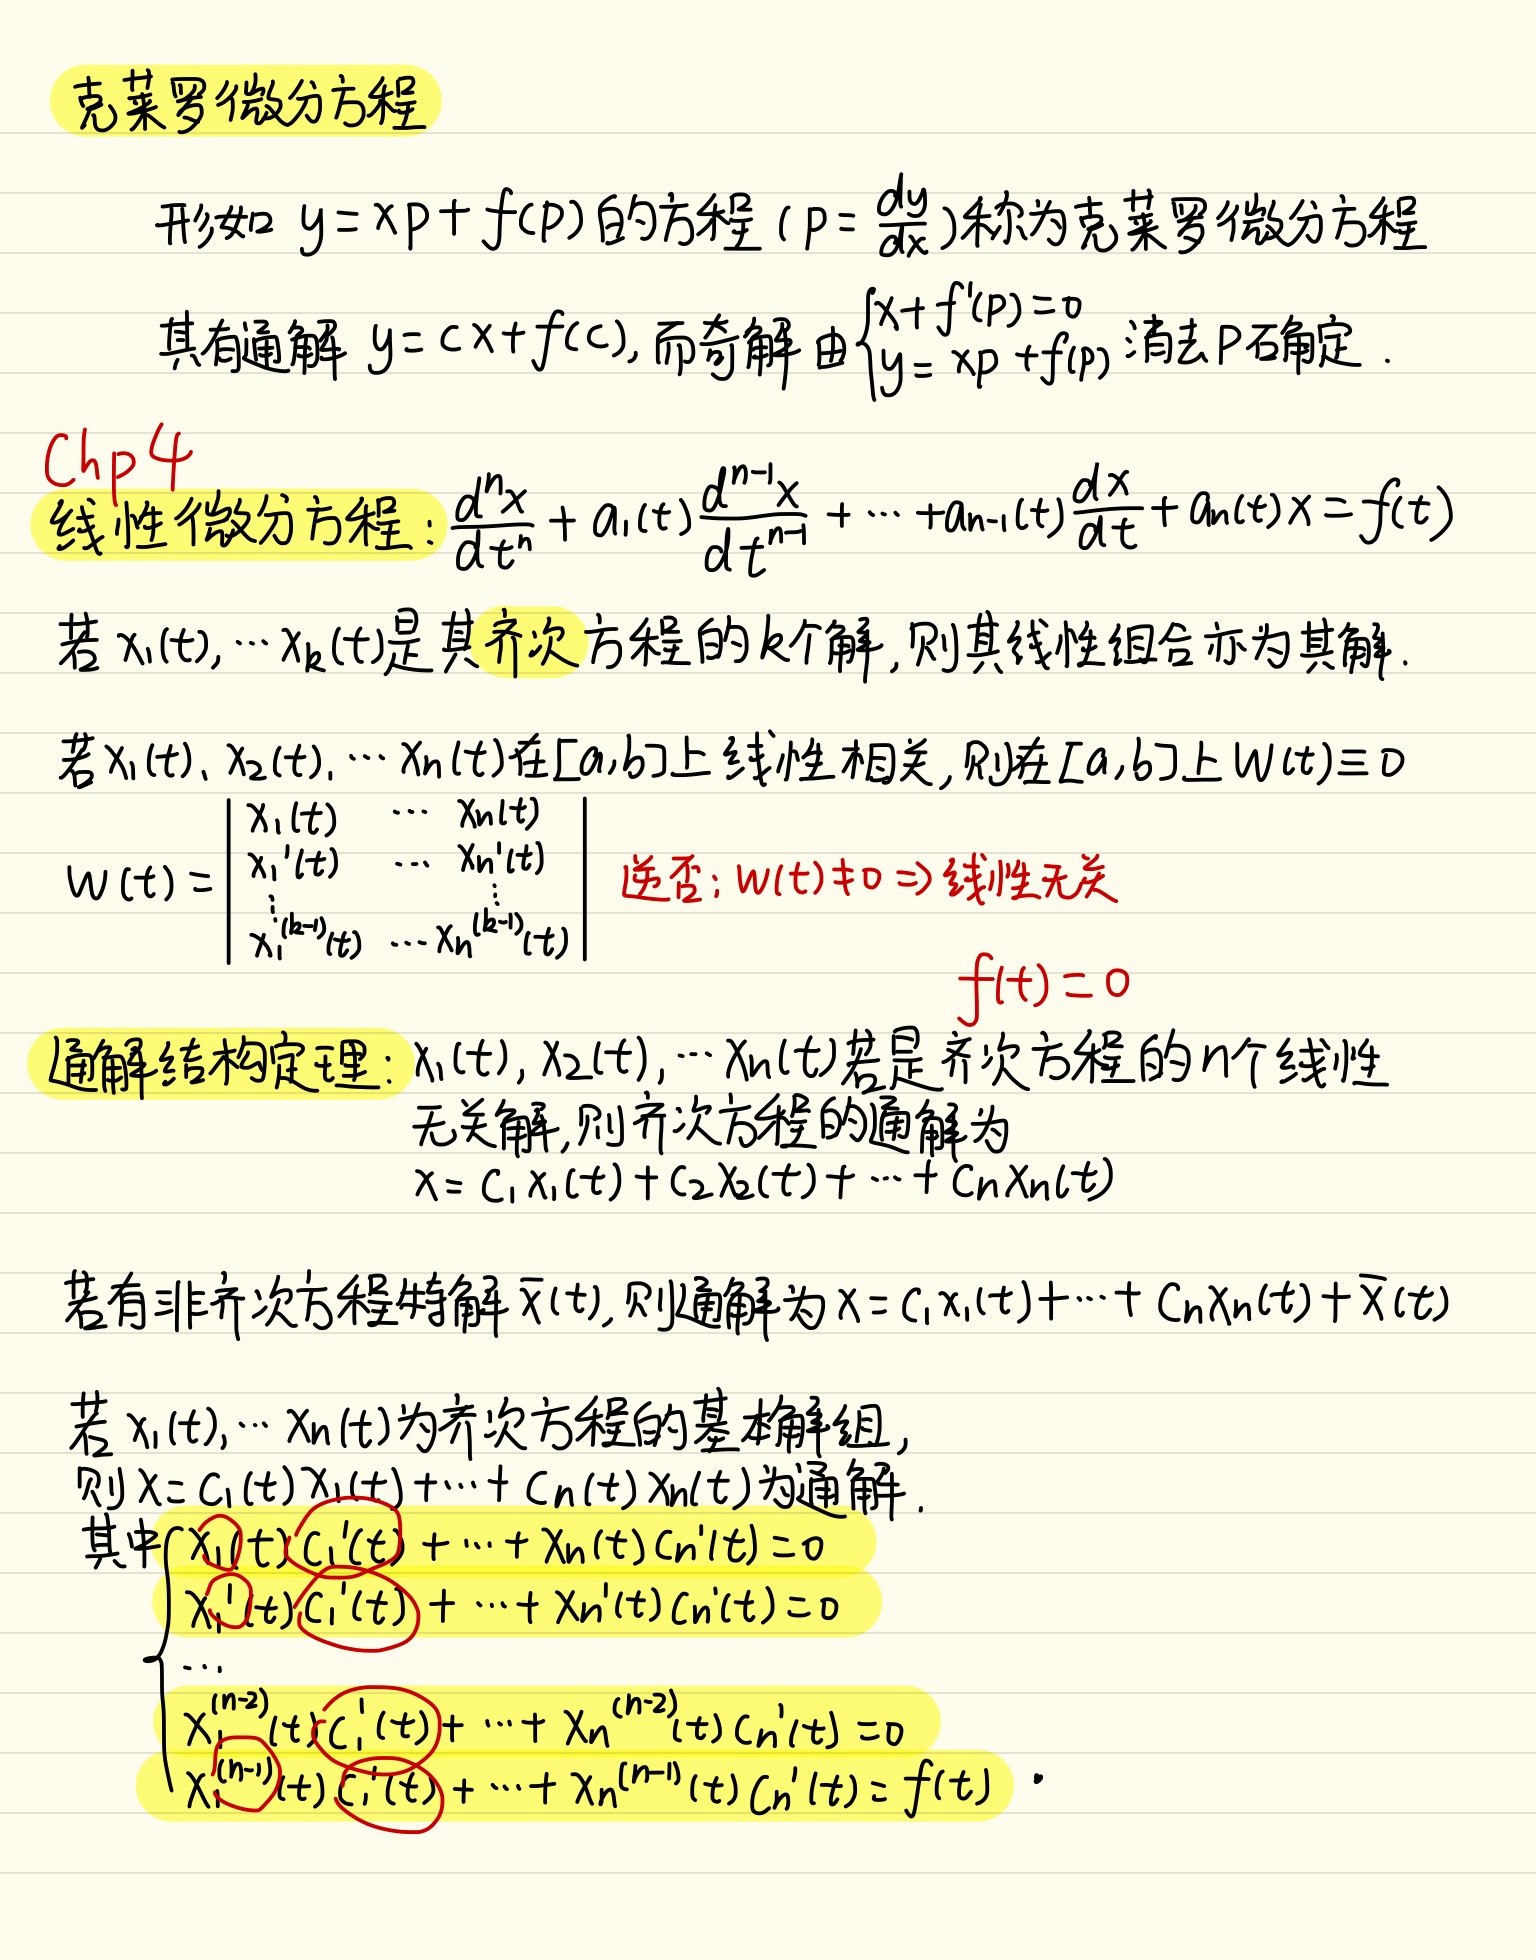 克莱罗微分方程
形如 y = xp + f(p) 的方程 ( p = dy/dx ) 称为克莱罗微分方程
其有通解 y = cx + f(c), 而奇解由 { x + f'(p) = 0
y = xp + f(p) 消去P确定.
Chp 4
线性微分方程: dⁿx/dtⁿ + a₁(t) dⁿ⁻¹x/dtⁿ⁻¹ + ⋯ + aₙ₋₁(t) dx/dt + aₙ(t) x = f(t)
若 x₁(t), ⋯ xₖ(t) 是其齐次方程的k个解, 则其线性组合亦为其解.
若 x₁(t)、x₂(t), ⋯ xₙ(t) 在[a,b]上线性相关, 则在[a,b]上 W(t) ≡ 0
W(t) = | x₁(t) ⋯ xₙ(t)
x₁'(t) ⋯ xₙ'(t)
⋮ ⋮
x₁⁽ᵏ⁻¹⁾(t) ⋯ xₙ⁽ᵏ⁻¹⁾(t) |
逆否: W(t) ≠ 0 ⇒ 线性无关
f(t) = 0
通解结构定理: x₁(t), x₂(t), ⋯ xₙ(t) 若是齐次方程的n个线性
无关解, 则齐次方程的通解为
x = c₁x₁(t) + c₂x₂(t) + ⋯ + cₙxₙ(t)
若有非齐次方程特解 x̄(t), 则通解为 x = c₁x₁(t) + ⋯ + cₙxₙ(t) + x̄(t)
若 x₁(t), ⋯ xₙ(t) 为齐次方程的基本解组,
则 x = c₁(t) x₁(t) + ⋯ + cₙ(t) xₙ(t) 为通解.
其中 { x₁(t) c₁'(t) + ⋯ + xₙ(t) cₙ'(t) = 0
x₁'(t) c₁'(t) + ⋯ + xₙ'(t) cₙ'(t) = 0
⋯
x₁⁽ⁿ⁻²⁾(t) c₁'(t) + ⋯ + xₙ⁽ⁿ⁻²⁾(t) cₙ'(t) = 0
x₁⁽ⁿ⁻¹⁾(t) c₁'(t) + ⋯ + xₙ⁽ⁿ⁻¹⁾(t) cₙ'(t) = f(t) .